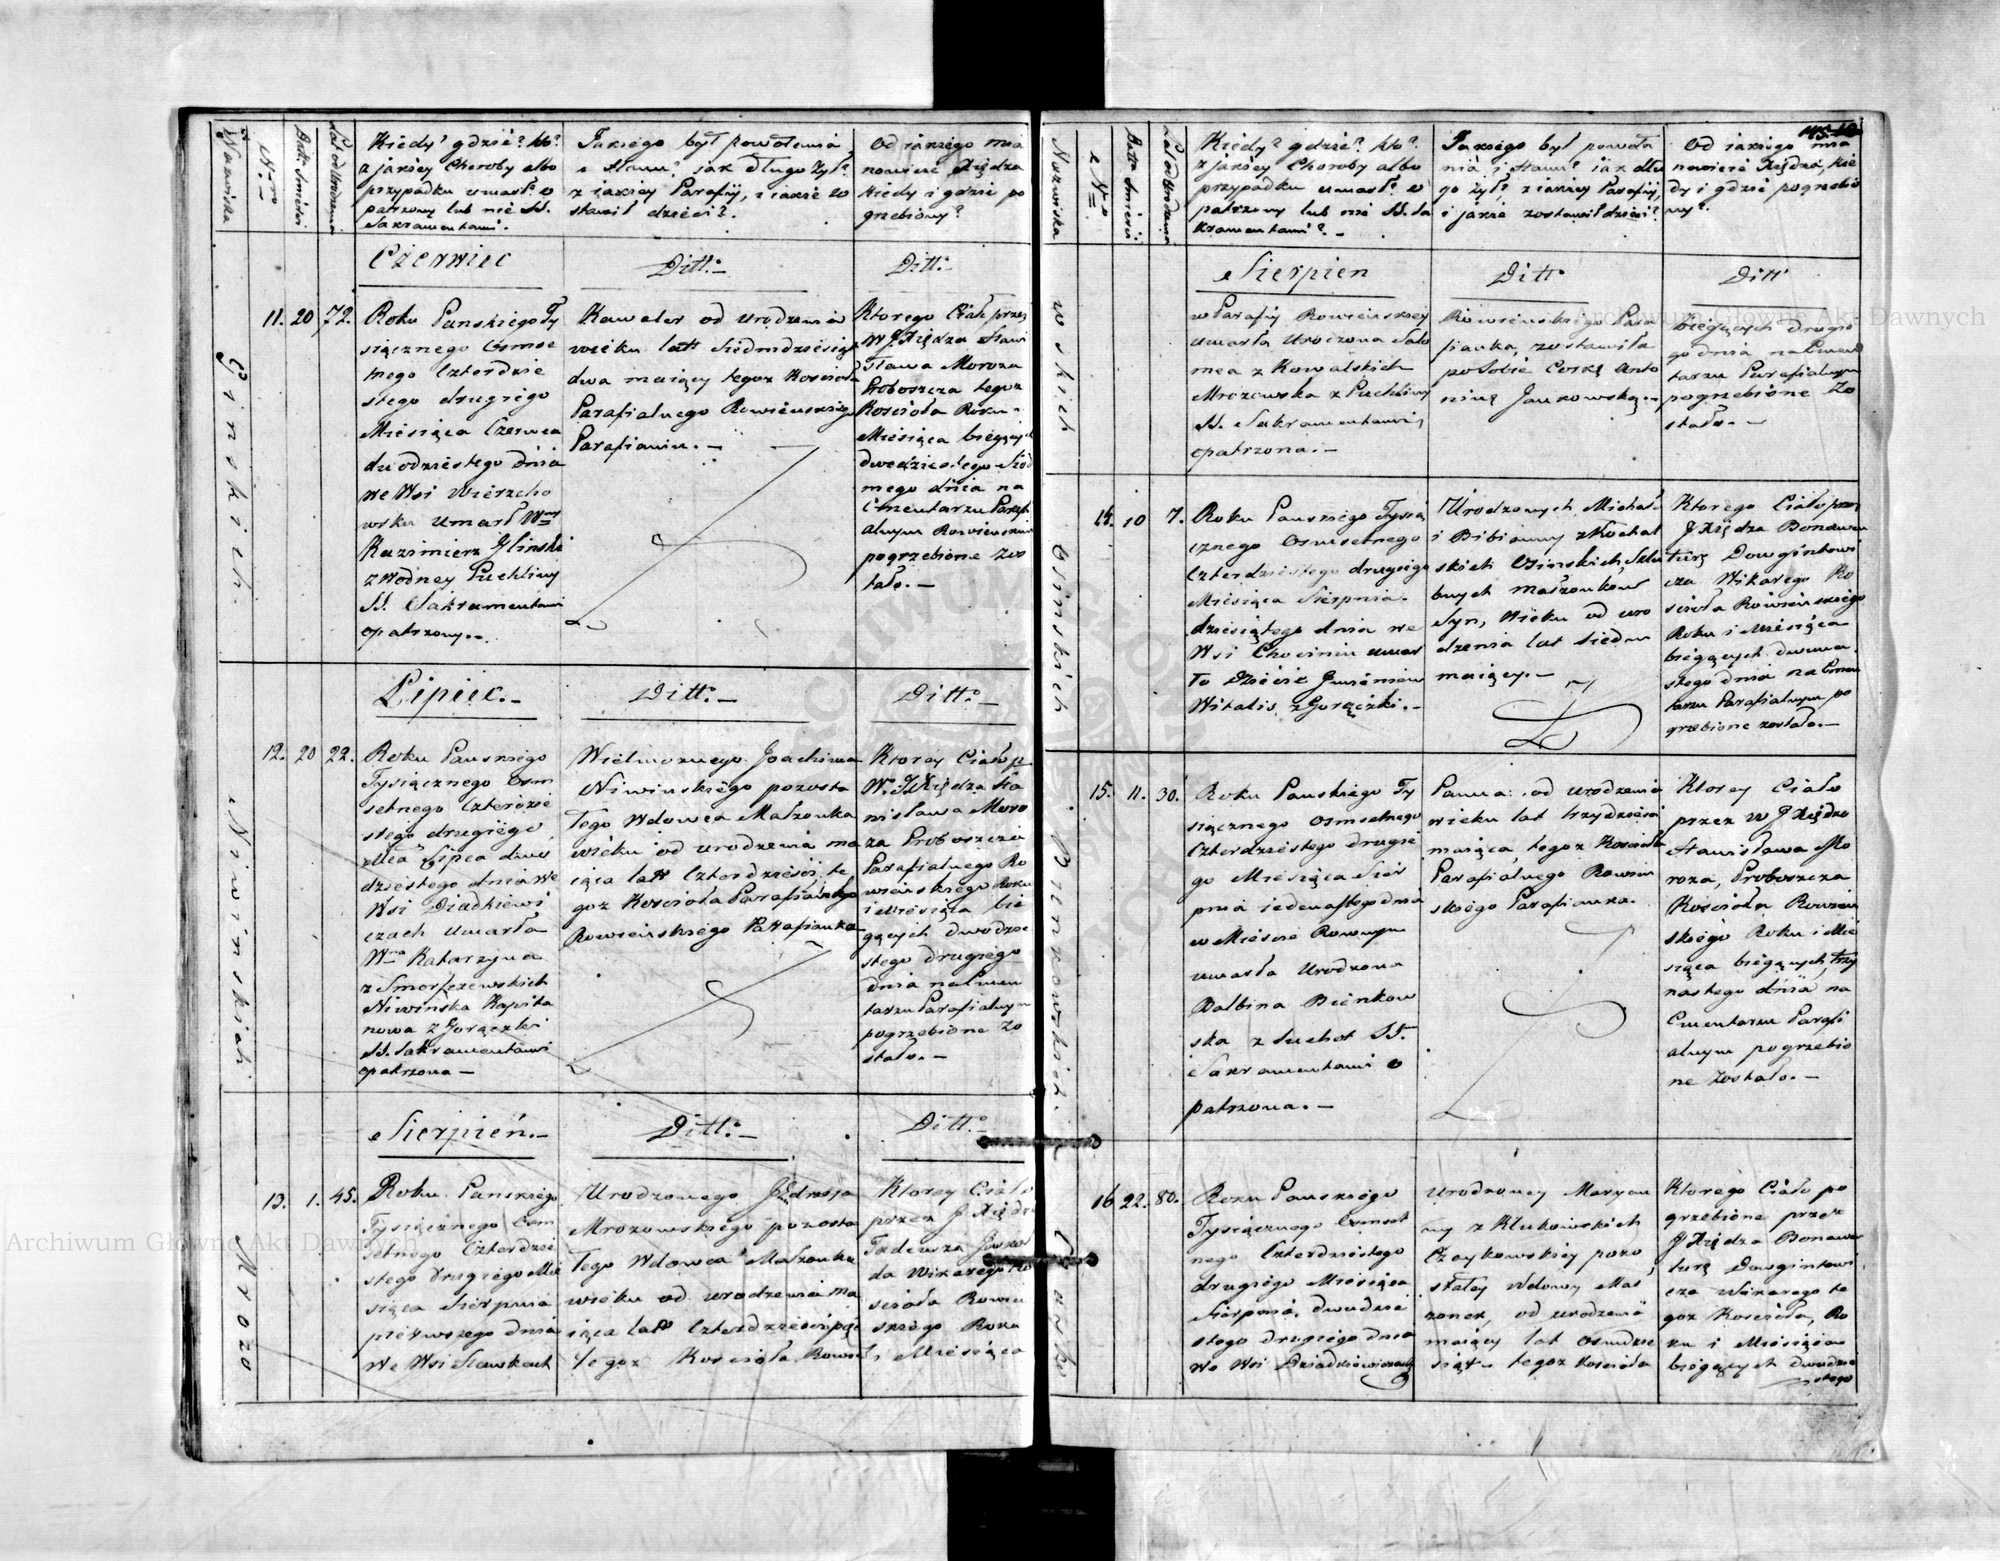 Nazwiska
Nro
Data Śmierci
Lat od Urodzenia
Kiedy? gdzie? kto?
z jakiey Choroby albo
przypadku umarł? o
patrzony lub nie SS.
Sakramentami.
Jakiego był powołania
i stanu? jak długo żył?
z jakiey Parafii, i jakie zo
stawił dzieci?
Od jakiego mia
nowicie Xiędza
kiedy i gdzie po
grzebiony?
Czerwiec
Ditt:
Ditt:
Glinskich.
11. 20 72.
Roku Panskiego Ty
siącznego Osmse
tnego Czterdzie
stego drugiego
Miesiąca Czerwca
dwudziestego dnia
we Wsi Wierzcho
wsku umarł Wny
Kazimierz Glinski
z wodney Puchliny
SS. Sakramentami
opatrzony.
Kawaler od urodzenia
wieku lat Siedmdziesiąt
dwa maiący tegoż Kościoła
Parafialnego Rowieńskiego
Parafianin.
Ktorego Ciało przez
W JXiędza Stani
sława Moroza
Proboszcza tegoż
Kościoła Roku
Miesiąca bieżących
dwudziestego Siod
mego dnia na
Cmentarzu Parafi
alnym Rowieńskim
pogrzebione zos
tało.
Lipiec.
Ditto
Ditto
Niwinskich
12. 20 22.
Roku Panskiego
Tysiącznego Osm
setnego Czterdzie
stego drugiego
Mca Lipca dwu
dziestego dnia we
Wsi Diadkiewi
czach umarła
Wna Katarzyna
z
Niwińska Kapita
nowa z Gorączki
SS. Sakramentami
opatrzona
Wielmożnego Joachima
Niwinskiego pozosta
łego Wdowca Małżonka
wieku od urodzenia ma
iąca latt Czterdzieści, te
goż Kościoła Parafialnego
Rowieńskiego Parafianka
Ktorey Ciało p.
W. JXiędza Sta
nisława Moro
za Proboszcza
Parafialnego Ro
wieńskiego Roku
i Miesiąca bie
żących dwudzie
stego drugiego
dnia na Cmen
tarzu Parafialnym
pogrzebione zo
stało.
Sierpień.
Ditt:
Ditt:
Mrozo
13. 1. 45.
Roku Panskiego
Tysiącznego Osm
setnego Czterdzie
stego drugiego Mie
siąca Sierpnia
pierwszego dnia
we Wsi
Urodzonego Jędrzeja
Mrozowskiego pozosta
łego Wdowca Małżonka
wieku od urodzenia ma
iąca latt Czterdzieści pięć
tegoż Kościoła Rowień
Ktorey Ciało
przez JXiędza
Tadeusza
da Wikarego Ko
ścioła Rowień
skiego Roku
i Miesiąca
Nazwiska
Nro
Data Śmierci
Lat od Urodzenia
Kiedy? gdzie? kto?
z jakiey Choroby albo
przypadku umarł? o
patrzony lub nie SS. Sa
kramentami?
Jakiego był powoła
nia, i stanu? jak dłu
go żył? z jakiey Parafii,
i jakie zostawił dzieci?
Od jakiego mia
nowicie Xiędza, kie
dy i gdzie pogrzebio
ny?
Sierpien
Ditto
Ditt
wskich
w Parafii Rowieńskiey
umarła Urodzona Salo
mea z Kowalskich
Mrozowska z Puchliny
SS. Sakramentami
opatrzona.
Rowieńskiego Para
fianka, zostawiła
po Sobie Corkę Anto
ninę Jankowską.
bieżących drugie
go dnia na Cmen
tarzu Parafialnym
pogrzebione zo
stało.
Osinskich
14. 10 7.
Roku Panskiego Tysią
cznego Osmsetnego
Czterdziestego drugiego
Miesiąca Sierpnia
dziesiątego dnia we
Wsi umar
ło Dziecie Imieniem
Witalis z Gorączki.
Urodzonych Michała
i Bibianny
skich Osinskich, Szlu
bnych małżonków
Syn, Wieku od uro
dzenia lat Siedm
maiący.
Ktorego Ciało przez
JXiędza Bonawen
turę Dowgintowi
cza Wikarego Ko
ścioła Rowieńskiego
Roku i Miesiąca
bieżących dwuna
stego dnia na Cmen
tarzu Parafialnym po
grzebione zostało.
Bienkowskich.
15. 11. 30.
Roku Panskiego Ty
siącznego Osmsetnego
Czterdziestego drugie
go Miesiąca Sier
pnia iedenastego dnia
w Mieście Rownym
umarła Urodzona
Balbina Bienkow
ska z Suchot SS.
Sakramentami o
patrzona.
Panna od urodzenia
wieku lat trzydzieści
maiąca, tegoż Kościoła
Parafialnego Rowień
skiego Parafianka.
Ktorey Ciało
przez W JXiędza
Stanisława Mo
roza, Proboszcza
Kościoła Rowień
skiego Roku i Mie
siąca bieżących trzy
nastego dnia na
Cmentarzu Parafi
alnym pogrzebio
ne zostało.
16 22. 80.
Roku Panskiego
Tysiącznego Osmset
nego Czterdziestego
drugiego Miesiąca
Sierpnia, dwudzie
stego drugiego dnia
we Wsi Dziadkiewiczach
Urodzoney Maryan
ny z Klukowskich
Czaykowskiey pozo
stałey Wdowy Mał
żonek, od urodzenia
maiący lat Osmdzie
siąt tegoż Kościoła
Ktorego Ciało po
grzebione przez
JXiędza Bonawen
turę Dowgintowi
cza Wikarego te
goż Kościoła, Ro
ku i Miesiąca
bieżących dwudzie
stego
Archiwum Główne Akt Dawnych
Archiwum Główne Akt Dawnych